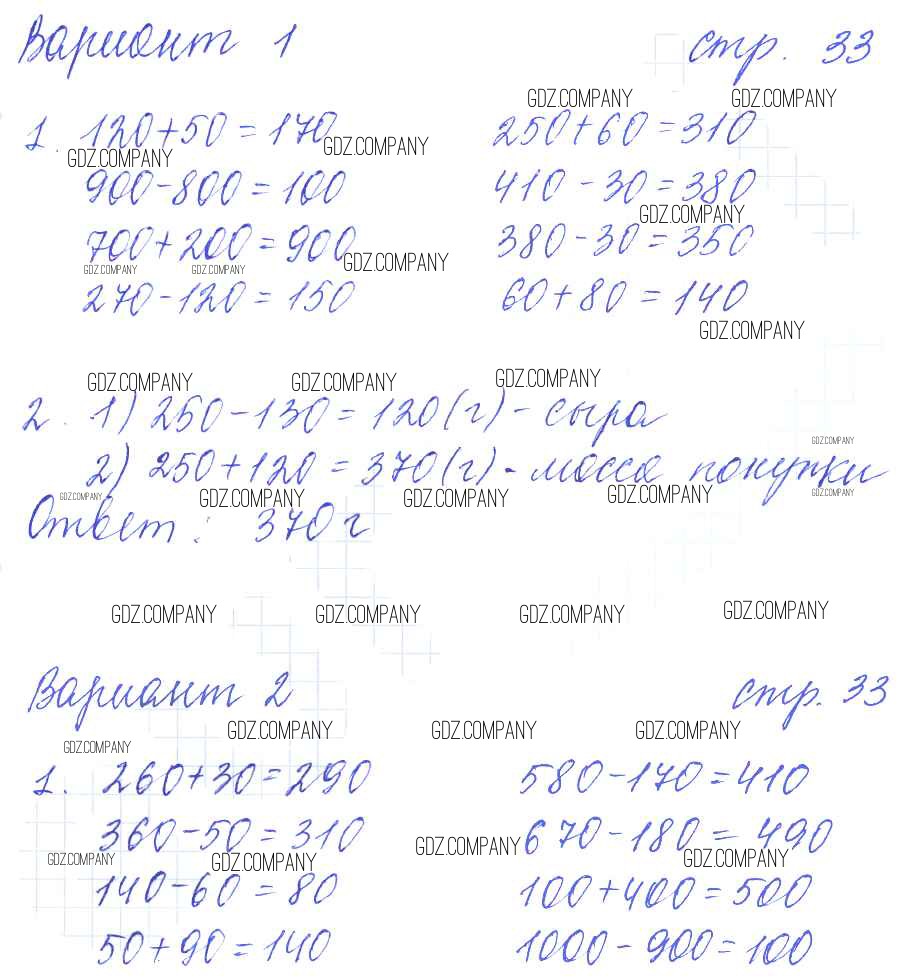 Вариант 1 стр. 33
GDZ.COMPANY GDZ.COMPANY
1. 120+50=170 250+60=310
GDZ.COMPANY GDZ.COMPANY
900-800=100 410-30=380
GDZ.COMPANY
700+200=900 380-30=350
GDZ.COMPANY GDZ.COMPANY GDZ.COMPANY
270-120=150 60+80=140
GDZ.COMPANY
GDZ.COMPANY GDZ.COMPANY GDZ.COMPANY
2. 1) 250-130=120(г)- сыра
GDZ.COMPANY
2) 250+120=370(г)- масса покупки
GDZ.COMPANY GDZ.COMPANY GDZ.COMPANY GDZ.COMPANY GDZ.COMPANY
Ответ: 370 г
GDZ.COMPANY GDZ.COMPANY GDZ.COMPANY GDZ.COMPANY
Вариант 2 стр. 33
GDZ.COMPANY GDZ.COMPANY GDZ.COMPANY GDZ.COMPANY
1. 260+30=290 580-170=410
360-50=310 670-180=490
GDZ.COMPANY GDZ.COMPANY GDZ.COMPANY GDZ.COMPANY
140-60=80 100+400=500
50+90=140 1000-900=100